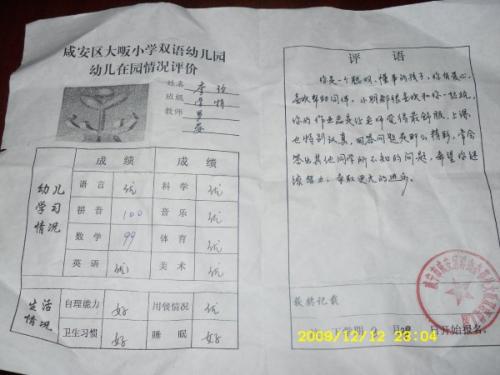 咸安区大畈小学双语幼儿园
幼儿在园情况评价
姓名 李
班级
教师
成绩 成绩
幼儿学习情况
语言 优 科学 优
拼音 100 音乐 优
数学 99 体育 优
英语 优 美术 优
生活情况
自理能力 好 用餐情况 优
卫生习惯 好 睡眠 好
评语
你是一个聪明、懂事的孩子，你有爱心，
喜欢帮助同伴，小朋友很喜欢和你一起玩，
你的作业总是让老师觉得最舒服，上课
也特别认真，回答问题是那么精彩，常会
答出其他同学所不知的问题，希望你继
续努力，争取更大的进步。
获奖记载
下学期 日开始报名。
2009/12/12 23:04